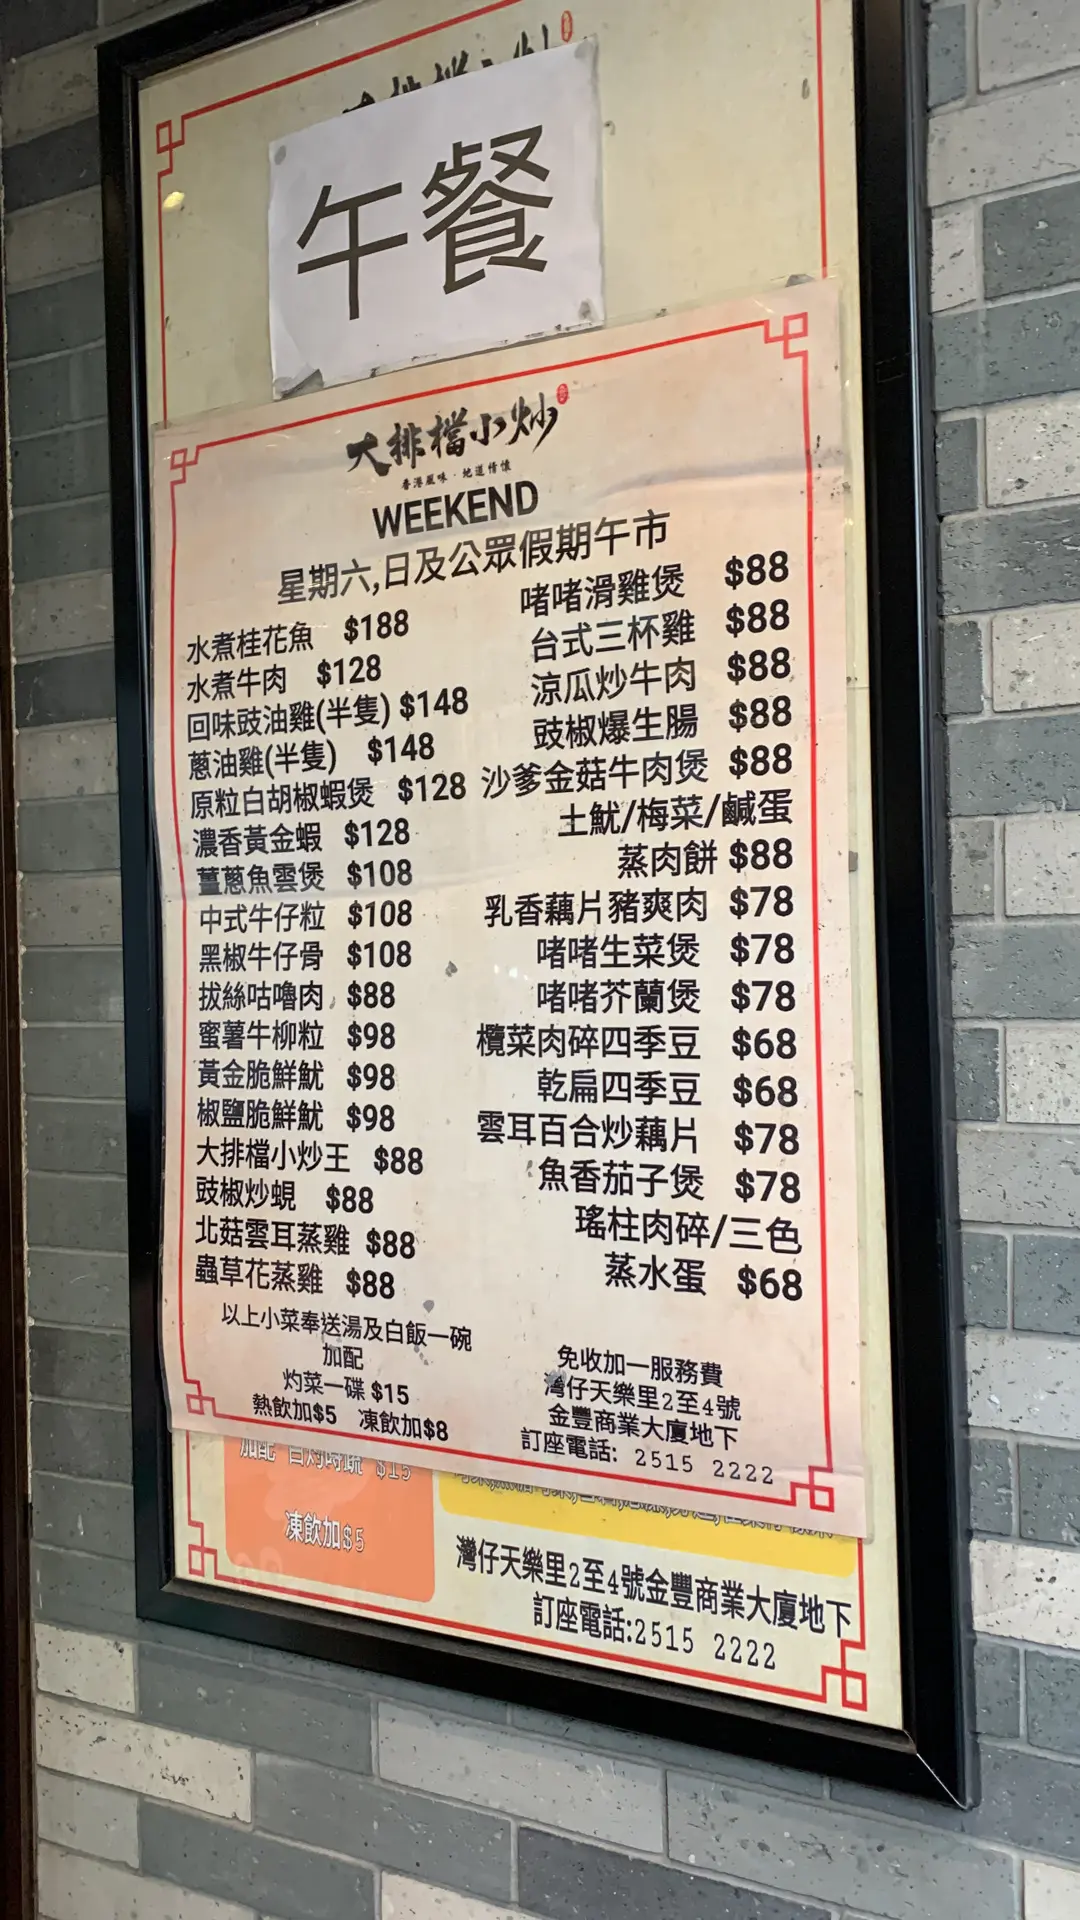 午餐
大排檔小炒
香港風味·地道情懷
WEEKEND
星期六,日及公眾假期午市
水煮桂花魚 $188
水煮牛肉 $128
回味豉油雞(半隻) $148
蔥油雞(半隻) $148
原粒白胡椒蝦煲 $128
濃香黃金蝦 $128
薑蔥魚雲煲 $108
中式牛仔粒 $108
黑椒牛仔骨 $108
拔絲咕嚕肉 $88
蜜薯牛柳粒 $98
黃金脆鮮魷 $98
椒鹽脆鮮魷 $98
大排檔小炒王 $88
豉椒炒蜆 $88
北菇雲耳蒸雞 $88
蟲草花蒸雞 $88
啫啫滑雞煲 $88
台式三杯雞 $88
涼瓜炒牛肉 $88
豉椒爆生腸 $88
沙爹金菇牛肉煲 $88
土魷/梅菜/鹹蛋
蒸肉餅 $88
乳香藕片豬爽肉 $78
啫啫生菜煲 $78
啫啫芥蘭煲 $78
欖菜肉碎四季豆 $68
乾扁四季豆 $68
雲耳百合炒藕片 $78
魚香茄子煲 $78
瑤柱肉碎/三色
蒸水蛋 $68
以上小菜奉送湯及白飯一碗
加配
灼菜一碟 $15
熱飲加$5 凍飲加$8
免收加一服務費
灣仔天樂里2至4號
金豐商業大廈地下
訂座電話: 2515 2222
加配 白灼時蔬 $15
凍飲加$5
灣仔天樂里2至4號金豐商業大廈地下
訂座電話:2515 2222